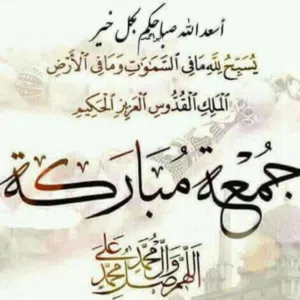 أسعد الله صباحكم بكل خير
يُسَبِّحُ لِلَّهِ مَا فِي السَّمَوَاتِ وَمَا فِي الْأَرْضِ
الْمَلِكِ الْقُدُّوسِ الْعَزِيزِ الْحَكِيمِ
جُمْعَة مُبَارَكَة
اللهم صل على محمد وآل محمد